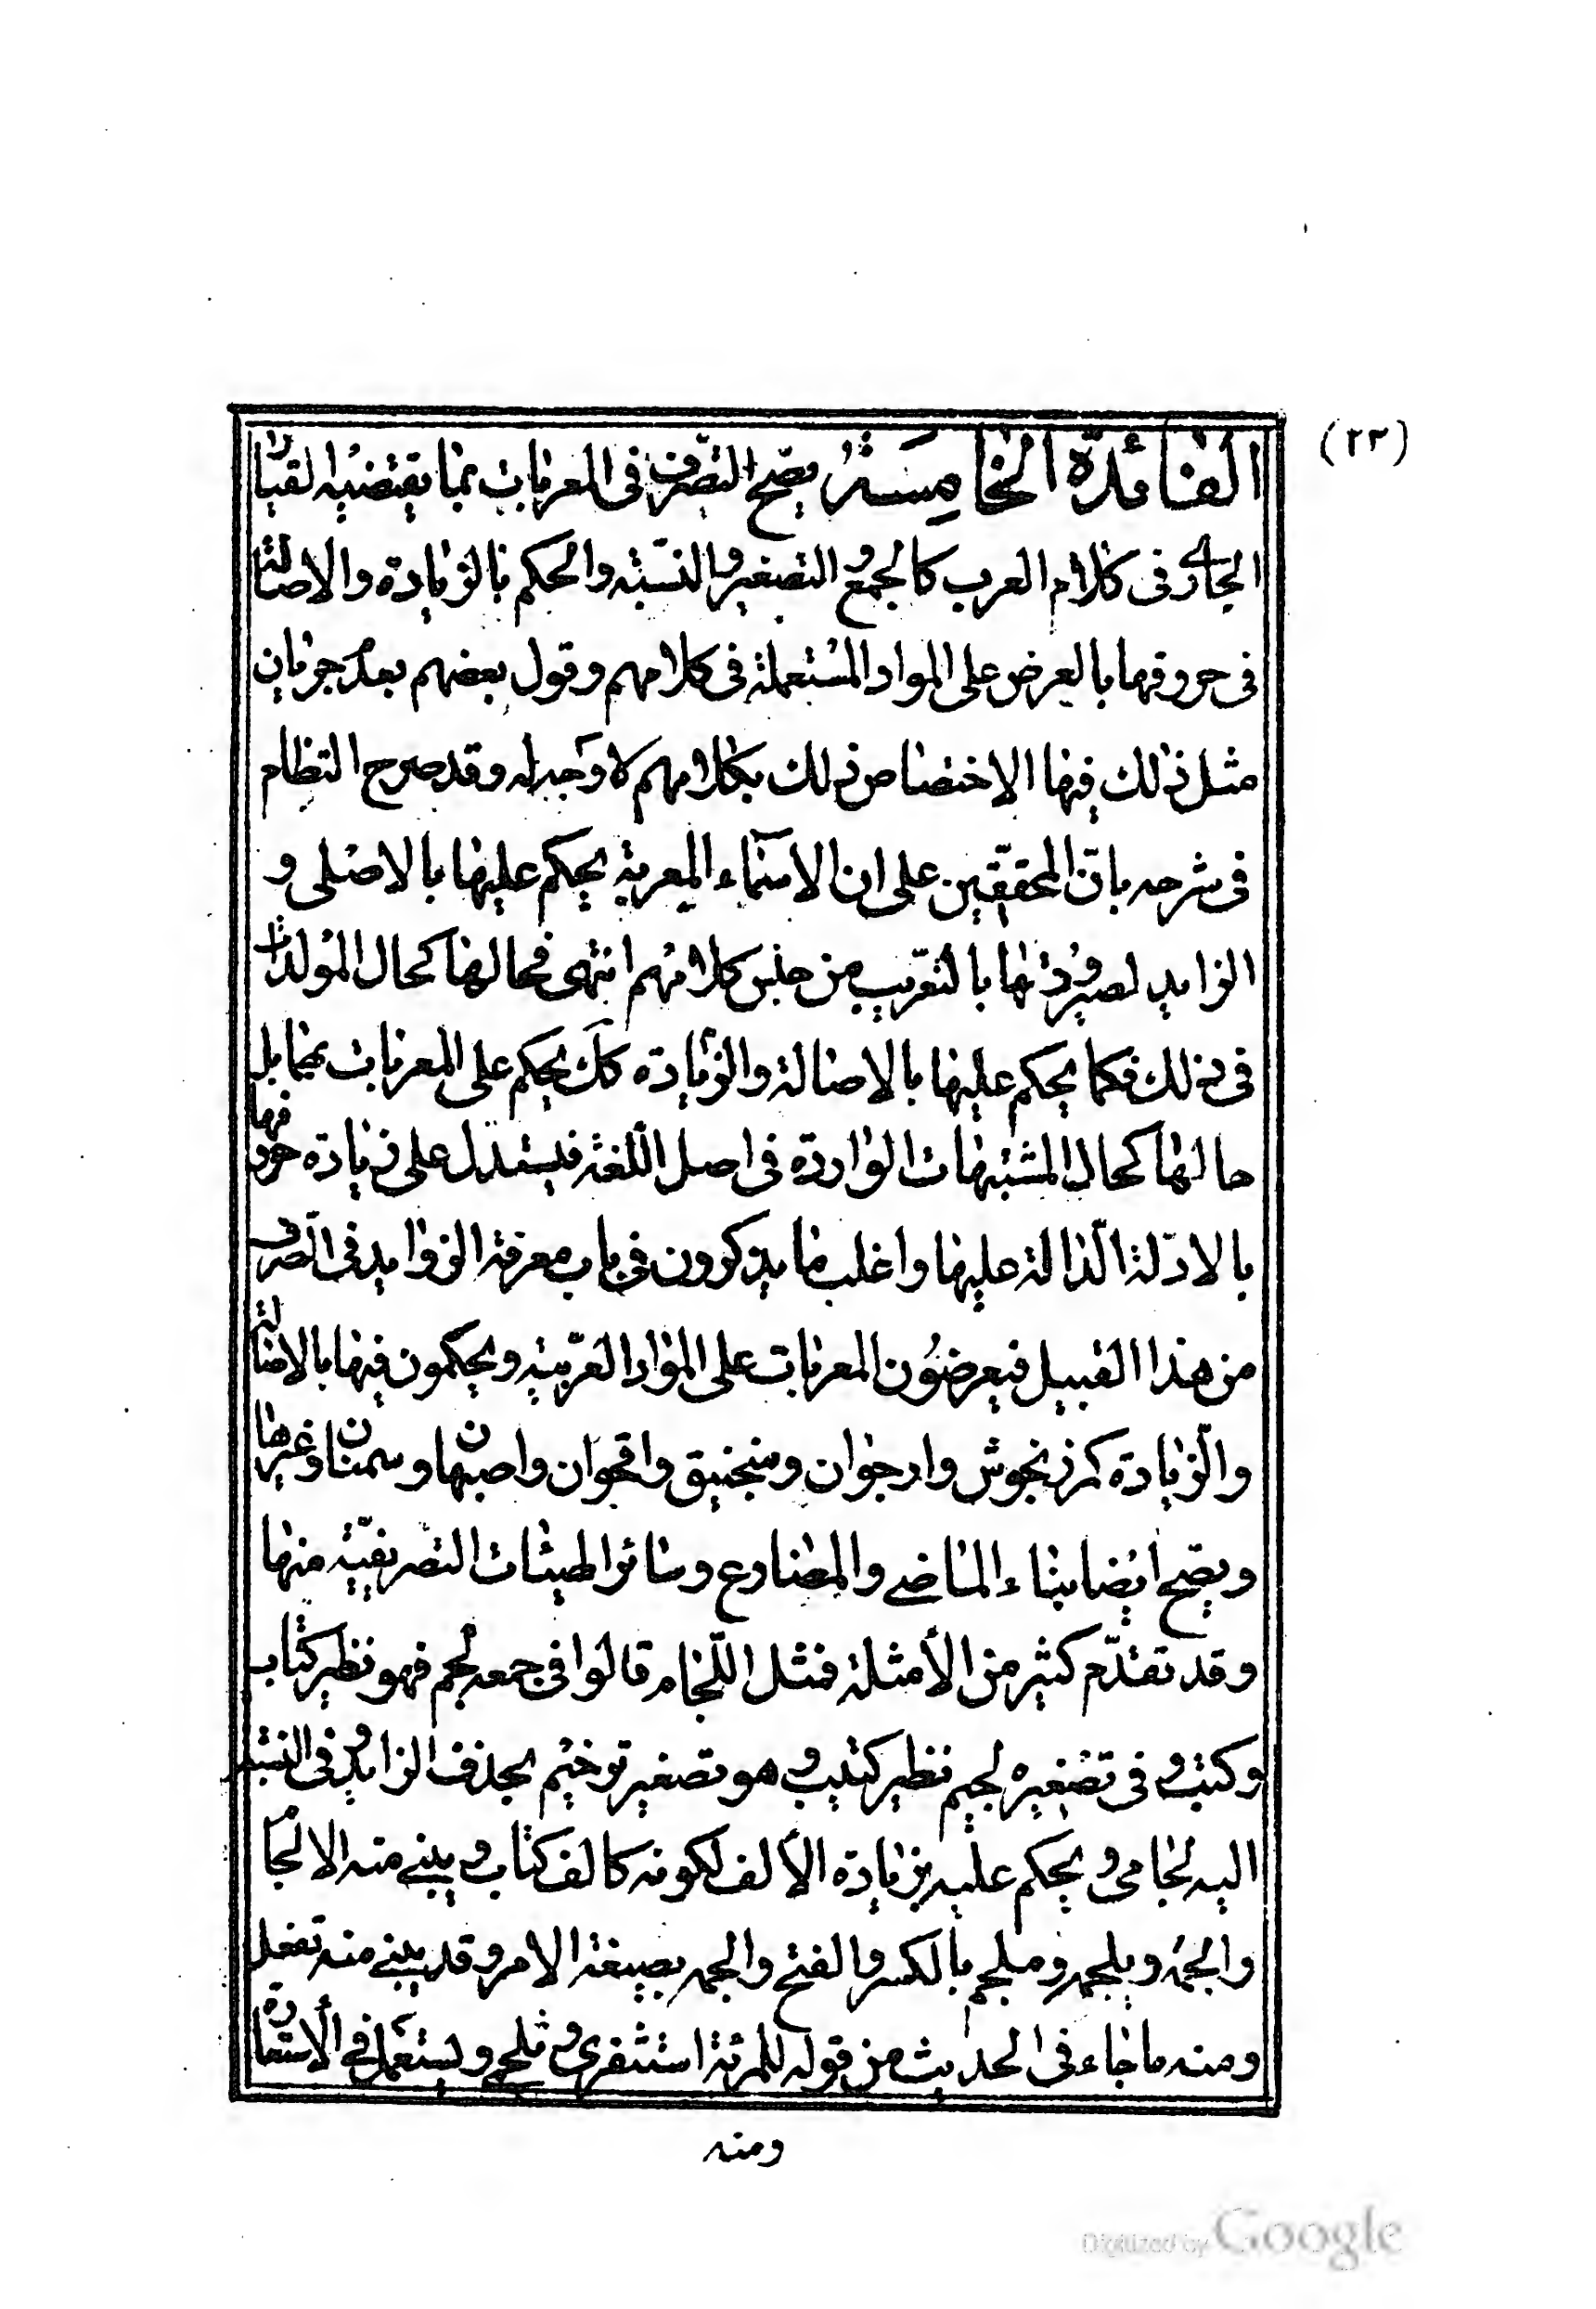 (٢٣)
الفائدة الخامسة يصح التصرف فى المعربات بما يقتضيه القياس
الجارى فى كلام العرب كالجمع و التصغير و النسبة والحكم بالزيادة والاصالة
فى حروفها بالعرض على المواد المستعملة فى كلامهم وقول بعضهم بعدم جريان
مثل ذلك فيها الاختصاص ذلك بكلامهم لا وجه له وقد صرح النظام
فى شرحه بان المحققين على ان الاسماء المعربة يحكم عليها بالاصلى و
الزايد لصيرورتها بالتعريب من جنس كلامهم انتهى فحالها كحال المولدات
فى ذلك فكما يحكم عليها بالاصالة والزيادة كك يحكم على المعربات بهما بل
حالها كحال المشبهات الواردة فى اصل اللغة فيستدل على زيادة حروفها
بالادلة الدالة عليها واغلب ما يذكرون فى باب معرفة الزوايد فى الصرف
من هذا القبيل فيعرضون المعربات على المواد العربية ويحكمون فيها بالاصالة
والزيادة كمرزنجوش وارجوان ومنجنيق واقحوان واصبهان وسمنان وغيرها
ويصح ايضا بناء الماضى والمضارع وسائر الهيئات التصريفية منها
وقد تقدم كثير من الأمثلة فمثل اللجام قالوا فى جمعه لجم فهو نظير كتاب
وكتب و فى تصغيره لجيم نظير كتيب و هو تصغير ترخيم بحذف الزايد و فى النسبة
اليه لجامى و يحكم عليه بزيادة الألف لكونه كالف كتاب و يبنى منه الالجام
والجمه ويلجمه وملجم بالكسر والفتح والجمه بصيغة الامر وقد يبنى منه تفعل
ومنه ما جاء فى الحديث من قوله للمرئة استثفرى و تلجمى ويستعمل فى الأستعارة
ومنه
Digitized by Google